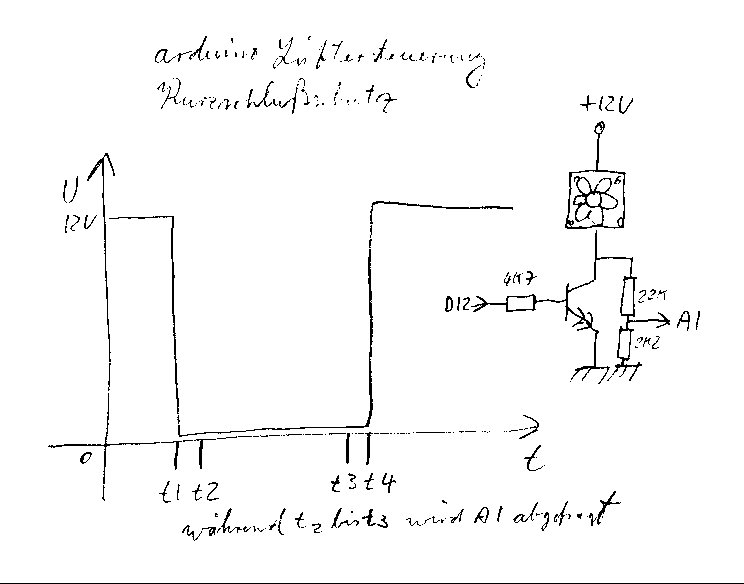 arduino Lüftersteuerung
Kurzschlußschutz
+12V
U
12V
4K7
D12
22K
A1
2K2
0
t
t1 t2
t3 t4
während t2 bis t3 wird A1 abgefragt